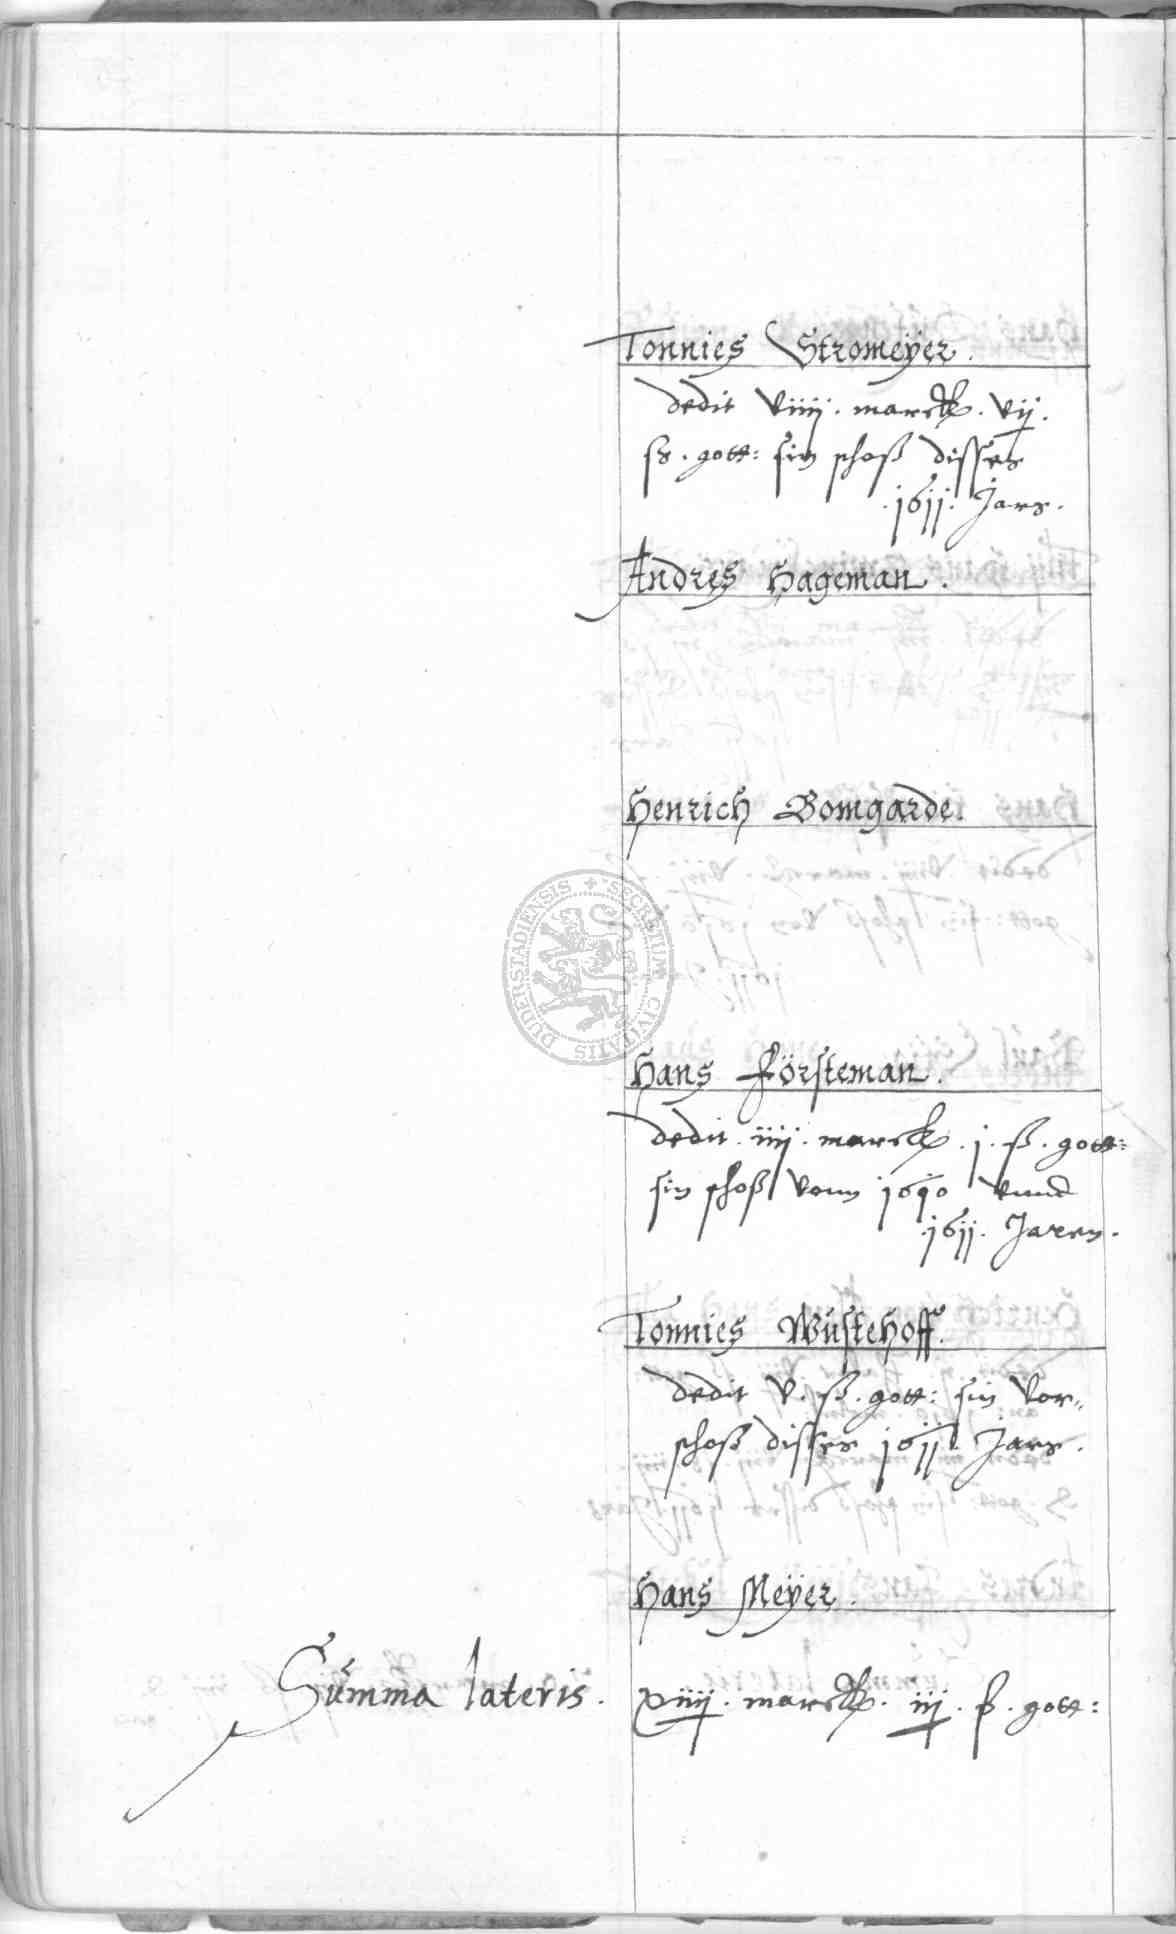 Tonnies Stromeÿer.
dedit viiij. marck. vij.
ß. gott: sin schoß disses
.1611. Jars.
Andres Hageman.
Henrich Bomgarde.
SECRETUM CIVITATIS DUDERSTADIENSIS
Hans Försteman.
dedit. iiij. marck. j. ß. gott:
sin schoß vonn 1610 vnnd
.1611. Jaren.
Tonnies Wüstehoff.
dedit v. ß. gott: sin vor=
schoß disses 1611. Jars.
Hans Meÿer.
Summa lateris. xiiij. marck. iij. ß. gott: